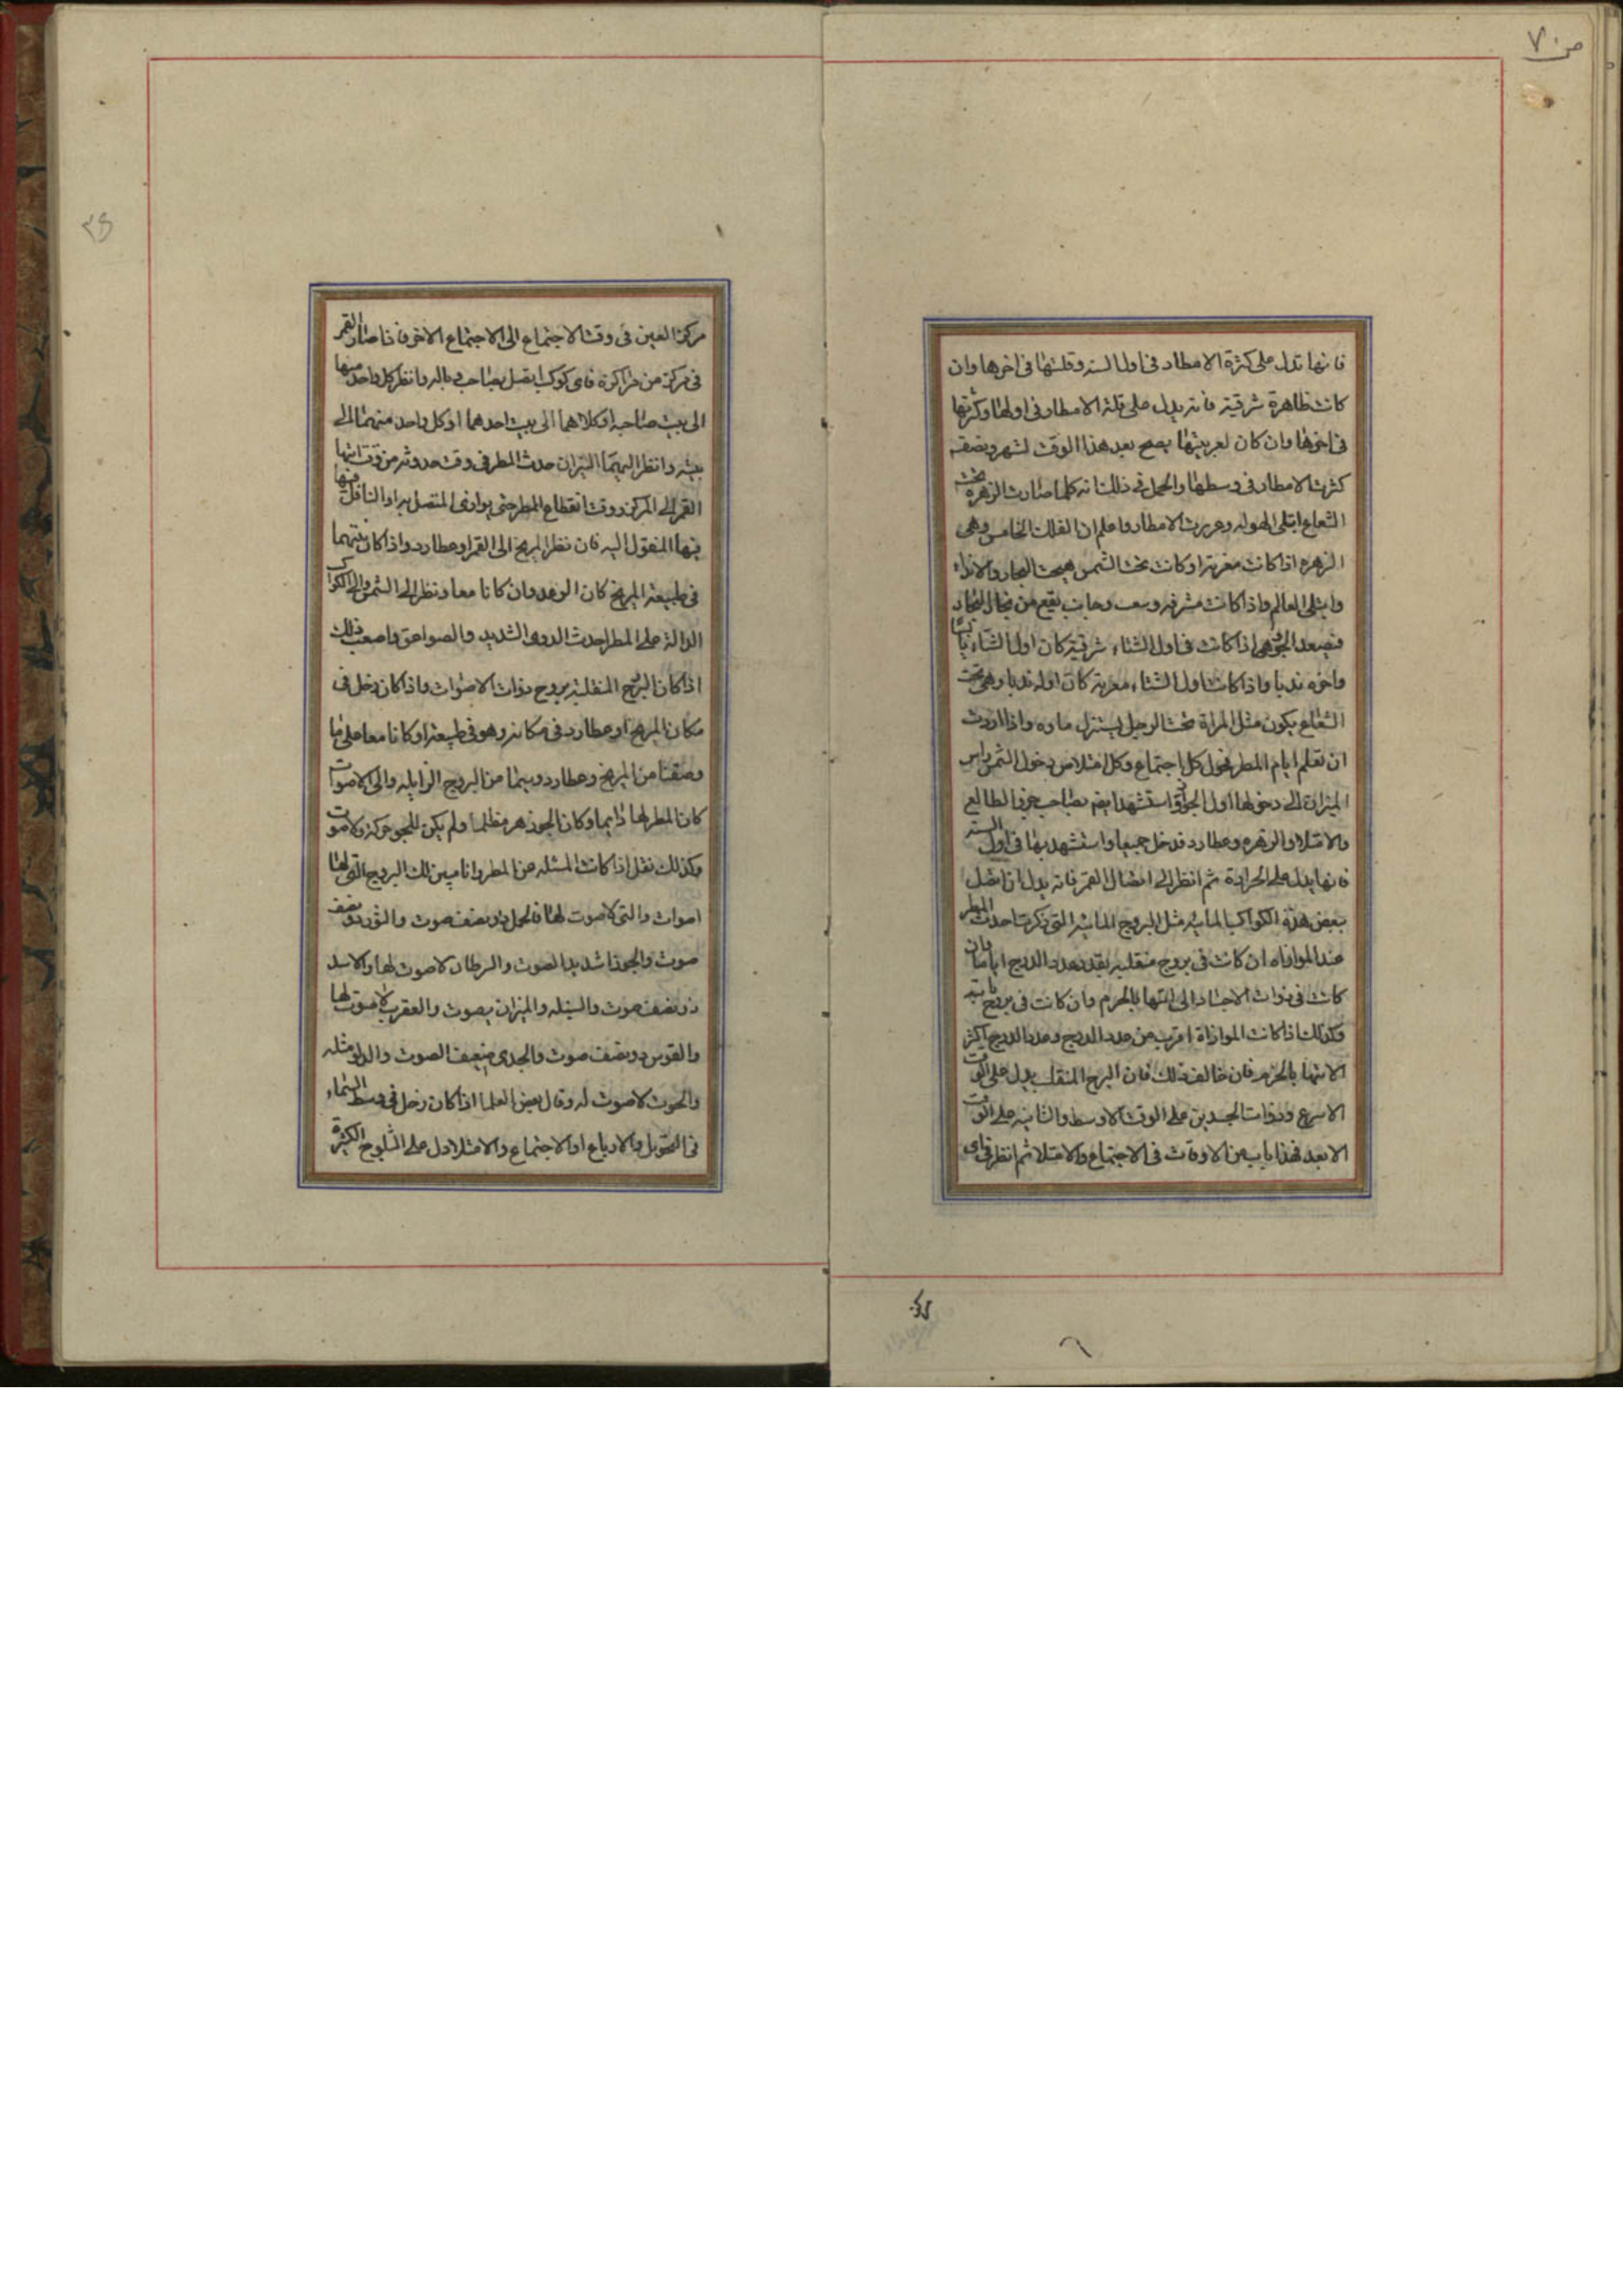 ص ٧٠
فانها تدل على كثرة الامطار فى اول السنه وقلتها فى اخرها وان
كانت ظاهرة شرقية فانه يدل على قلة الامطار فى اولها وكثرتها
فى اخرها وان كان لغربيتها يصح بعد هذا الوقت لشهر ونصفه
كثرت الامطار فى وسطها والحمل فى ذلك انه كلما صارت الزهره تحت
الشعاع ابتلى الهوله وعررت الامطار واعلم ان الفلك الخامس وهى
الزهره اذا كانت مغربة او كانت تحت الشمس هيجت البحار والانداء
وابتلى العالم واذا كانت مشرقه وسعت وحاب يقع من بخال البخار
فيصعد الجو فهى اذا كانت فى اول الشتاء شرقية كان اول الشتاء يابسا
واخره نديا واذا كانت اول الشتاء مغربة كان اوله نديا وهى تحت
الشعاع يكون مثل المراة تحت الرجل يستنزل ماوه واذا اردت
ان تعلم ايام المطر فحول كل اجتماع وكل امتلا من دخول الشمس راس
الميزان الى دخولها اول الجوزا واستشهد ايضم بصاحب جزء الطالع
والامتلا والزهره وعطارد فدخل جميعا واستشهد بها فى اول السنه
فانها يدل على الحرادة ثم انظر الى اتصال القمر فانه يدل ان اتصل
ببعض هذه الكواكب المائيه مثل البروج المائيه التى ذكرتا حدث المطر
عند الموازاه ان كانت فى بروج منقلبه بقدر عدد الدرج اياما فان
كانت فى ذوات الاجساد الى انتها بالجرم وان كانت فى بروج ثابته
وكذلك اذا كانت الموازاة اقرب من عدد الدرج وعدد الدرج اكثر
الانتها بالجرم فان خالف ذلك فان البرج المنقلب يدل على الوقت
الاسرع وذوات الجسدين على الوقت الاوسط والثابته على الوقت
الابعد فهذا باب من الاوقات فى الاجتماع والامتلا ثم انظر فى اى
مركز العين فى وقت الاجتماع الى الاجتماع الاخر فاذا صار القمر
فى مركز من مراكزه فاى كوكب اتصل بصاحب باله وانظر كل واحد منها
الى بيت صاحبه او كلاهما الى بيت احدهما او كل واحد منهما الى
بيته وانظر اليهما النيران حدث المطر فى وقت حدوثه من وقت انتها
القمر الى المركز ووقت انقطاع المطر حتى يوازى المتصل به او الناقل فيها
منها المنقول اليه فان نظر المريخ الى القمر او عطارد واذا كان بينهما
فى طبيعة المريخ كان الرعد وان كانا معا ونظر الى الشمس والى الكواكب
الدالة على المطر احدث الدوى الشديد والصواعق واصعب ذلك
اذا كان البرج المنقلبه بروج ذوات الاصوات واذا كان زحل فى
مكان المريخ او عطارد فى مكانه وهو فى طبيعته او كانا معا على ما
وصفنا من المريخ وعطارد وبينما من البروج الزايله والى الاصوات
كان المطر لها دايما وكان الجوزهر مظلما ولم يكن للجو حركة ولا صوت
وكذلك نقل اذا كانت المسئله عن المطر وانا مبين لك البروج التى لها
اصوات والتى لا صوت لها فالحمل ذو نصف صوت والثور ذو نصف
صوت والجوزا شديد الصوت والسرطان لا صوت لها والاسد
ذو نصف صوت والسنبله والميزان بصوت والعقرب لا صوت لها
والقوس ذو نصف صوت والجدى ضعيف الصوت والدلو مثله
والحوت لا صوت له وقال بعض العلما اذا كان زحل فى وسط السماء
فى التحويل والارباع او الاجتماع والامتلا دل على الثلوج الكثيرة